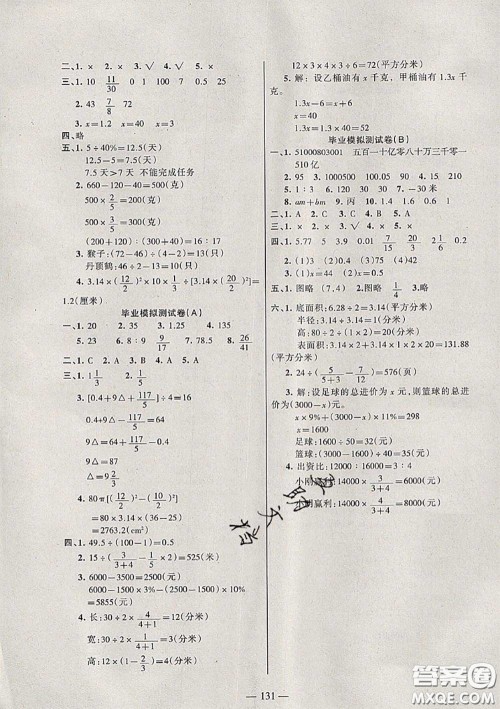 二、1. × 2. × 3. √ 4. √ 5. ×
三、1. 10 11/30 0 1 100 7 0.5 25
2. 43 7/8 72
3. x=1.2 x=40 x=133
四、略
五、1. 5÷40%=12.5(天)
12.5-5=7.5(天)
7.5天>7天 不能完成任务
2. 660-120-40=500(克)
500×2/5=200(克)
500×3/5=300(克)
(200+120):(300+40)=16:17
3. 猴子:(72-46)÷(4-2)=13(只)
丹顶鹤:46÷2-13=10(只)
4. 3.14×(12/2)²×12÷[3.14×(20/2)²]=
1.2(厘米)
毕业模拟测试卷(A)
一、1. 20 2. 35 3. 1.25 4. 135
5. 23.8 6. 8:9 9/17 7. > 8. 26/41
二、1. C 2. A 3. B 4. A 5. A
三、1. 1 1/3
2. [0.4+9△+117/5]÷4=6
0.4+9△+117/5=24
9△=1/5
△=1/45
4. 80π[(12/2)²-(10/2)²]
=80×3.14×(36-25)
=2763.2(m²)
四、1. 49.5÷(100-1)=0.5(米)
2. 15÷(3/(3+4)-1/5×2)=525(米)
3. 6000-3500=2500(元)
6000-1500×3%-(2500-1500)×10%
=5855(元)
4. 长:30÷2×4/(4+1)=12(分米)
宽:30÷2×1/(4+1)=3(分米)
高:12×(1-2/3)=4(分米)
12×3×4÷2=72(平方分米)
5. 解:设乙桶油有x千克,甲桶油有1.3x千
克。
1.3x-6=x+6
x=40
1.3x=1.3×40=52
毕业模拟测试卷(B)
一、1. 51000803001 五百一十亿零八十万三千零一
510亿
2. 95 3. 1000500 4. 100 5. 150
6. 1:30 7. -30米
8. am+bm 9. 丙 10. 1.5
二、1. A 2. C 3. B 4. A 5. A
三、1. × 2. × 3. √ 4. × 5. ×
四、1. 5.77 5 3.9 0.01 7/15 20 3/2 6.8
2. (1)5 (2)0.1
3. (1)x=4 (2)x=5/8
五、1. 图略 2. (4)图略 1/4
六、1. 底面积:6.28÷2=3.14(平方分米)
半径:3.14÷3.14=1(分米)
高:80÷2÷(1×2)=20(分米)
表面积:3.14×2+3.14×1×2×20=131.88
(平方分米)
2. 24÷(5/(5+3)-7/12)=576(页)
3. 解:设足球的总进价为x元,则篮球的总进
价为(3000-x)元。
x×9%+(3000-x)×11%=298
x=1600
足球:1600÷50=32(元)
篮球:(3000-1600)÷40=35(元)
4. 出资比:12000:16000=3:4
14000×3/(3+4)=6000(元)
赢利:14000×4/(3+4)=8000(元)
— 131 —
答案圈
MXQE.COM